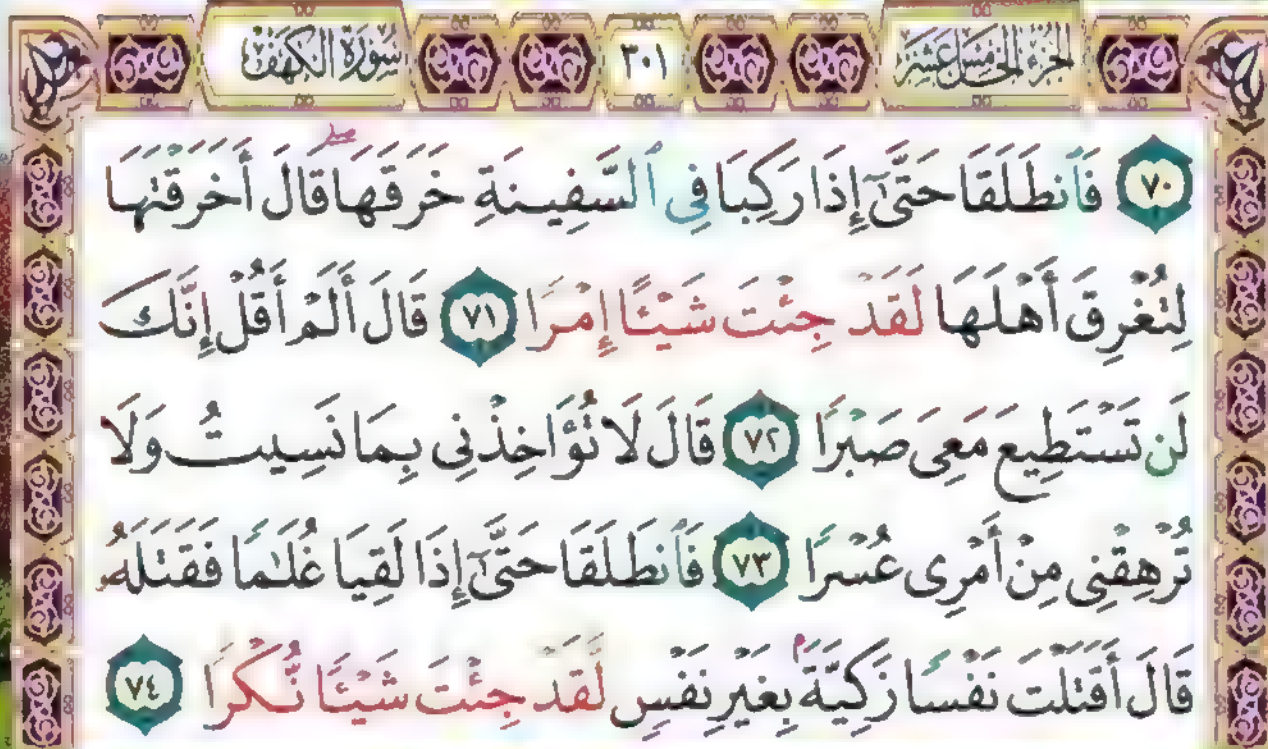 الجزء الخامس عشر ٣٠١ سورة الكهف
٧٠ فَٱنطَلَقَا حَتَّىٰٓ إِذَا رَكِبَا فِى ٱلسَّفِينَةِ خَرَقَهَا ۖ قَالَ أَخَرَقْتَهَا
لِتُغْرِقَ أَهْلَهَا لَقَدْ جِئْتَ شَيْـًٔا إِمْرًا ٧١ قَالَ أَلَمْ أَقُلْ إِنَّكَ
لَن تَسْتَطِيعَ مَعِىَ صَبْرًا ٧٢ قَالَ لَا تُؤَاخِذْنِى بِمَا نَسِيتُ وَلَا
تُرْهِقْنِى مِنْ أَمْرِى عُسْرًا ٧٣ فَٱنطَلَقَا حَتَّىٰٓ إِذَا لَقِيَا غُلَـٰمًا فَقَتَلَهُۥ
قَالَ أَقَتَلْتَ نَفْسًا زَكِيَّةًۢ بِغَيْرِ نَفْسٍ لَّقَدْ جِئْتَ شَيْـًٔا نُّكْرًا ٧٤